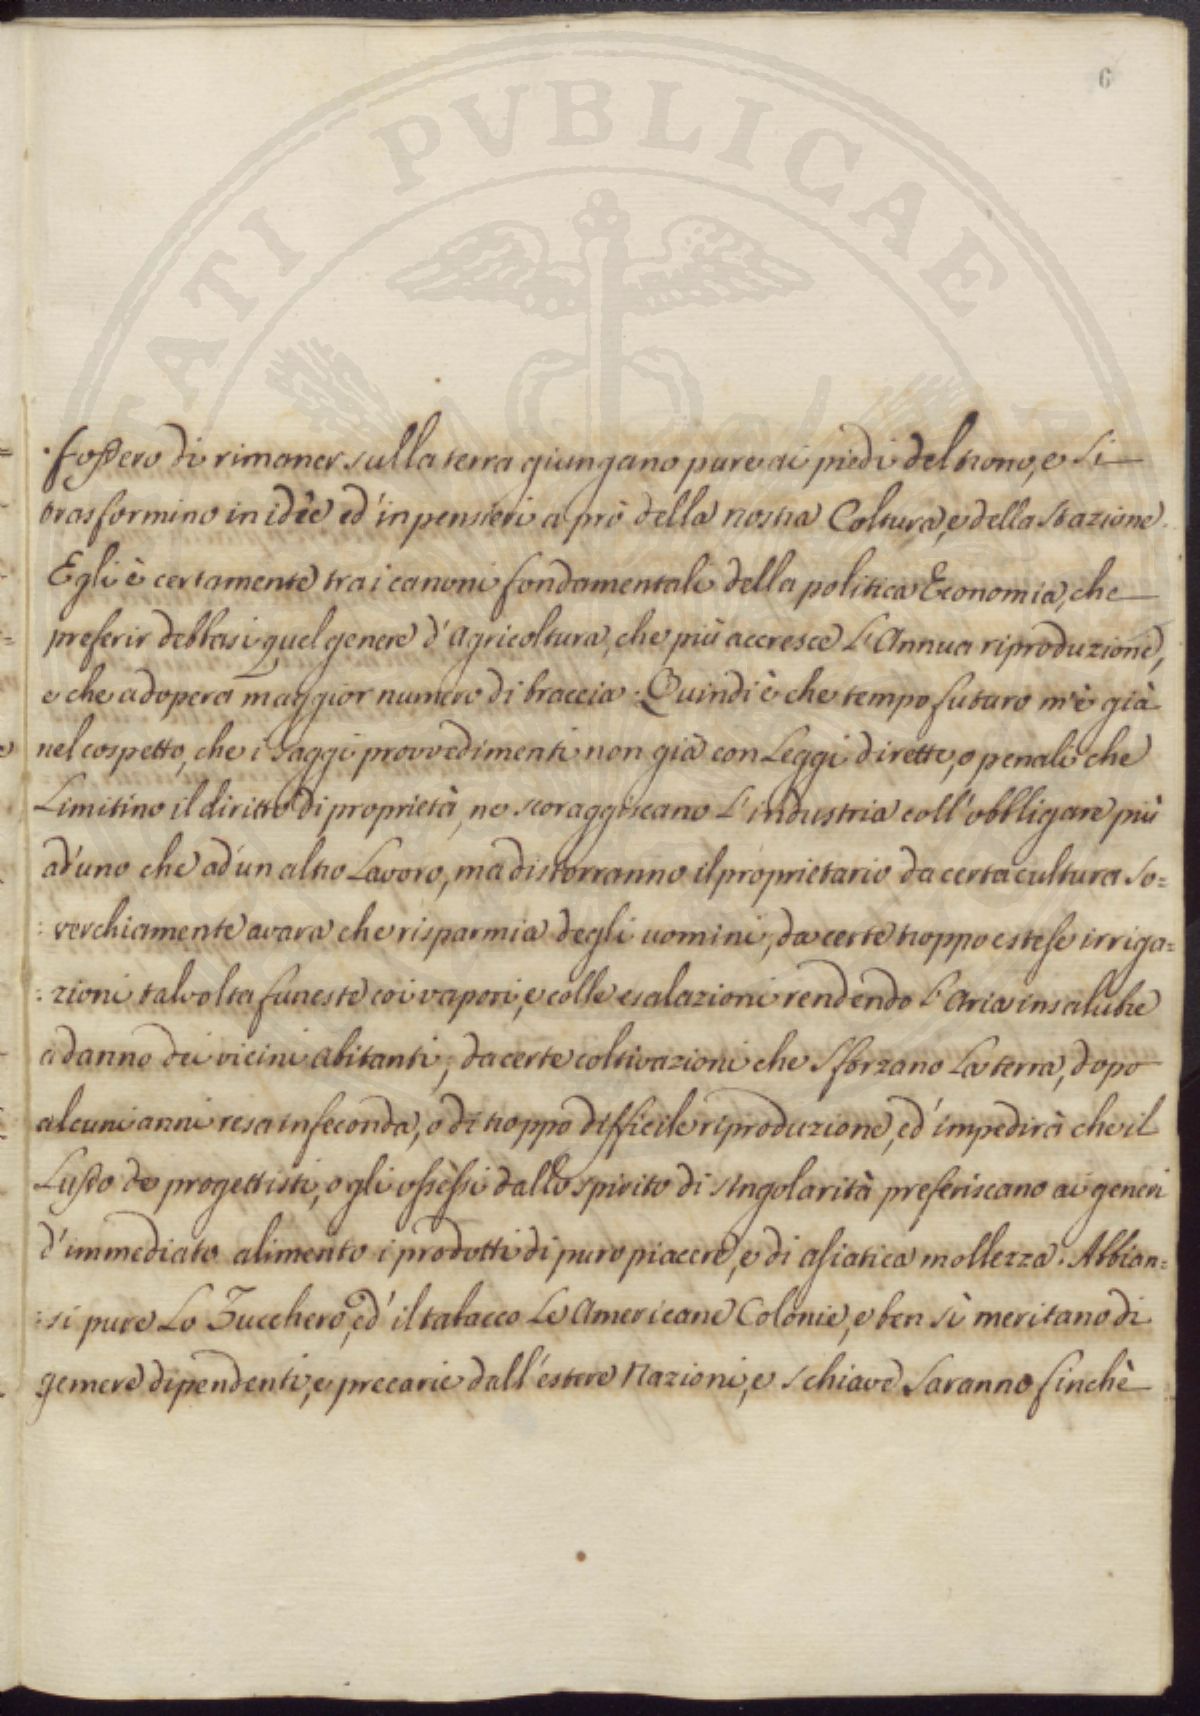 6
fossero di rimaner sulla terra giungano pure ai piedi del trono, e si
trasformino in idèe ed' in pensieri a prò della nostra Coltura, e della Stazione.
Egli è certamente tra i canoni fondamentali della politica Economia, che
preferir debbasi quel genere d'Agricoltura, che più accresce l'Annua riproduzione,
e che adopera maggior numero di braccia. Quindi è che tempo futuro m'è già
nel cospetto, che i saggi provvedimenti non già con Leggi dirette, o penali che
Limitino il diritto di proprietà, ne scoraggiscano L'industria coll'obbligare più
ad'uno che ad'un altro Lavoro, ma distorranno il proprietario da certa cultura so=
:verchiamente avara che risparmia degli uomini, da certe troppo estese irriga=
:zioni talvolta funeste coi vapori, e colle esalazioni rendendo L'Aria insalubre
a danno dei vicini abitanti, da certe coltivazioni che Sforzano La terra, dopo
alcuni anni resa infeconda, o di troppo difficile riproduzione, ed' impedirà che il
Lusso de progettisti, o gli ossèssi dallo spirito di singolarità preferiscano ai generi
d'immediato alimento i prodotti di puro piacere, e di asiatica mollezza. Abbian=
:si pure Lo Zucchero, ed' il tabacco Le Americane Colonie, e ben sì meritano di
gemere dipendenti, e precarie dall'estere Nazioni, e Schiave Saranno finchè
PUBLICAE